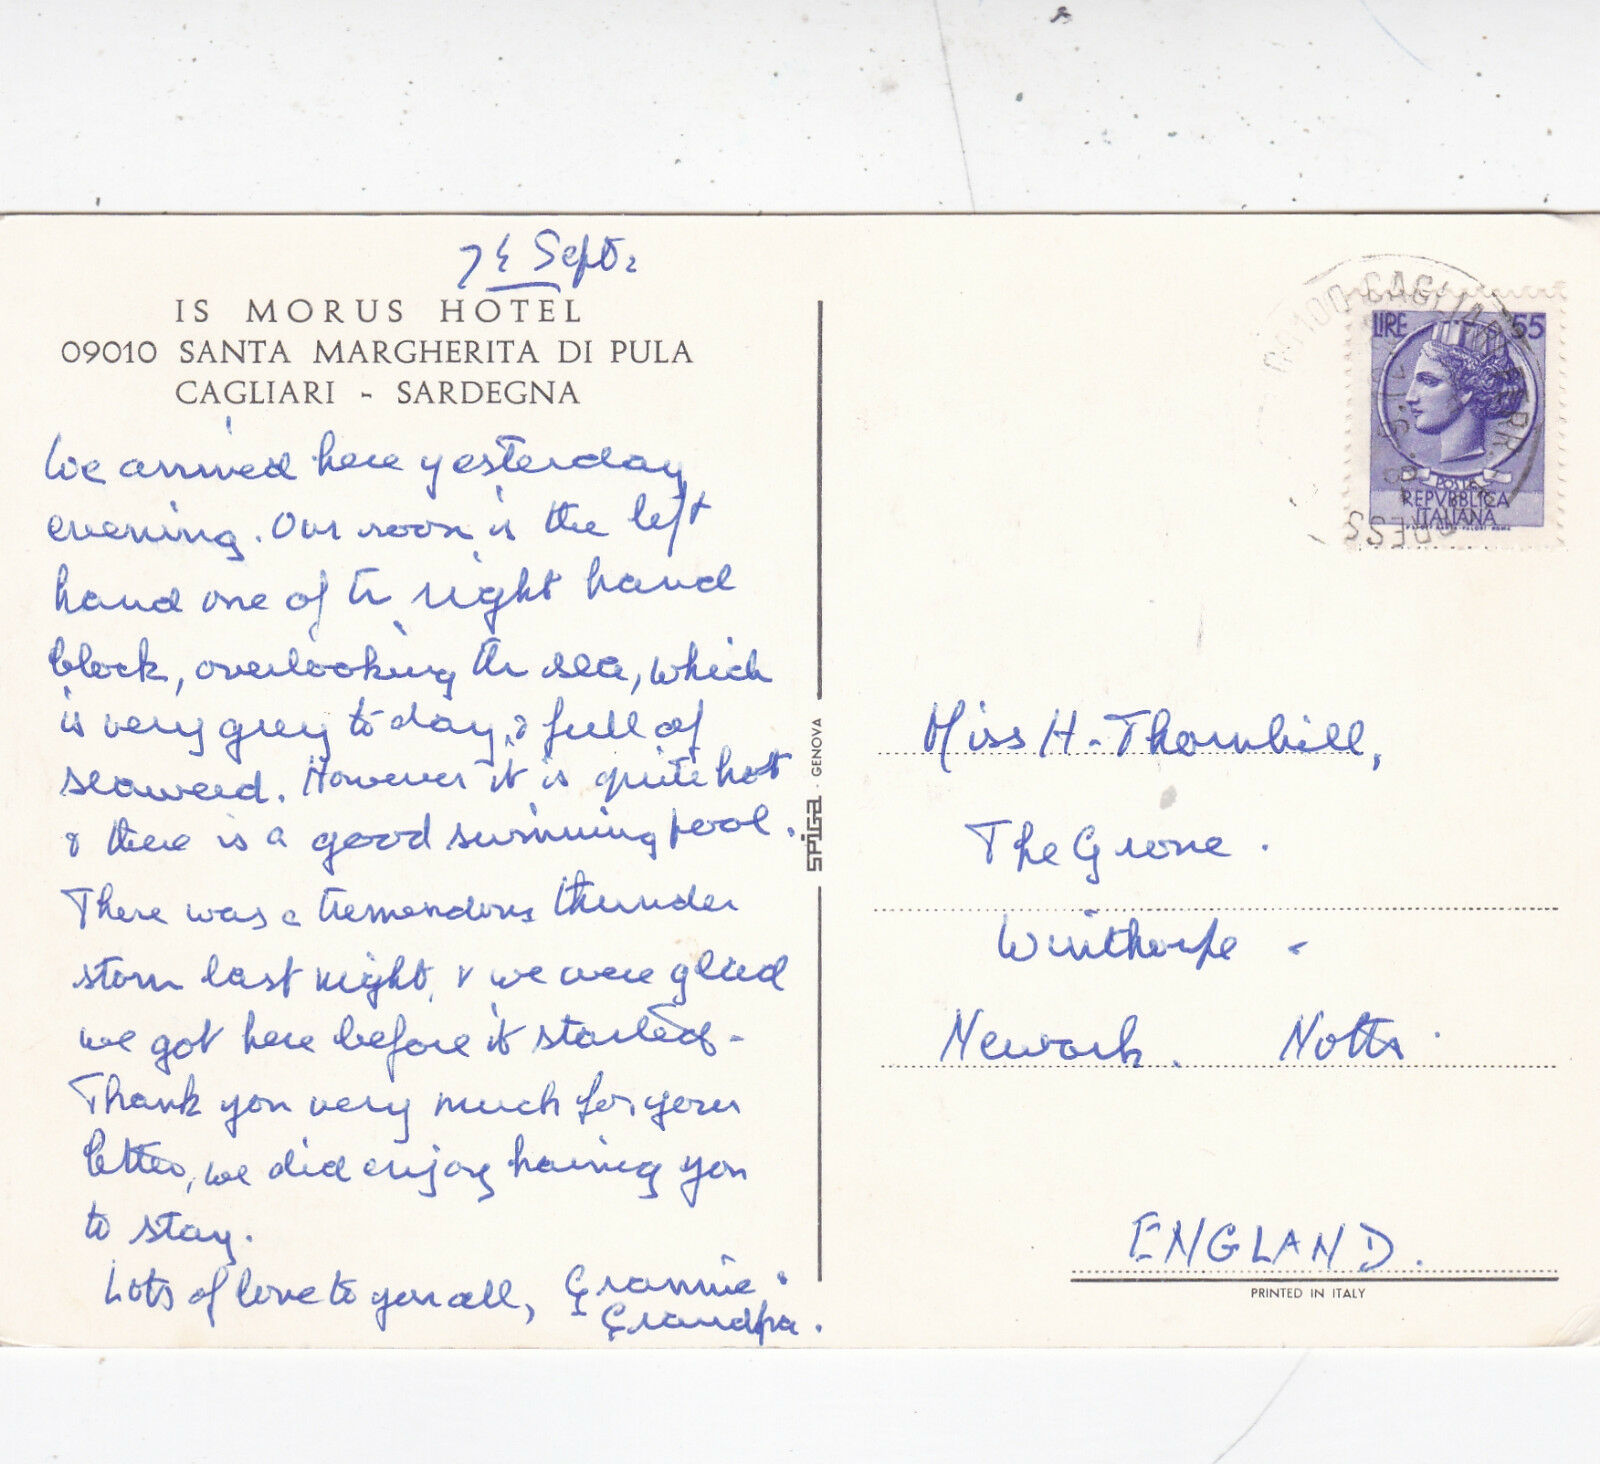 7th Sept.
IS MORUS HOTEL
09010 SANTA MARGHERITA DI PULA
CAGLIARI - SARDEGNA
We arrived here yesterday
evening. Our room is the left
hand one of the right hand
block, overlooking the sea, which
is very grey to day, & full of
seaweed. However it is quite hot
& there is a good swimming pool.
There was a tremendous thunder
storm last night, & we were glad
we got here before it started.
Thank you very much for your
letter, we did enjoy having you
to stay.
Lots of love to you all, Grannie &
Grandpa.
SPIGA - GENOVA
09100 CAGLIARI
LIRE 55
POSTE
REPVBBLICA
ITALIANA
Miss H. Thornhill,
The Grove.
Winthorpe -
Newark. Notts.
ENGLAND.
PRINTED IN ITALY